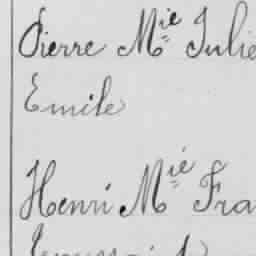 Pierre Mie Julie
Emile
Henri Mié Fra